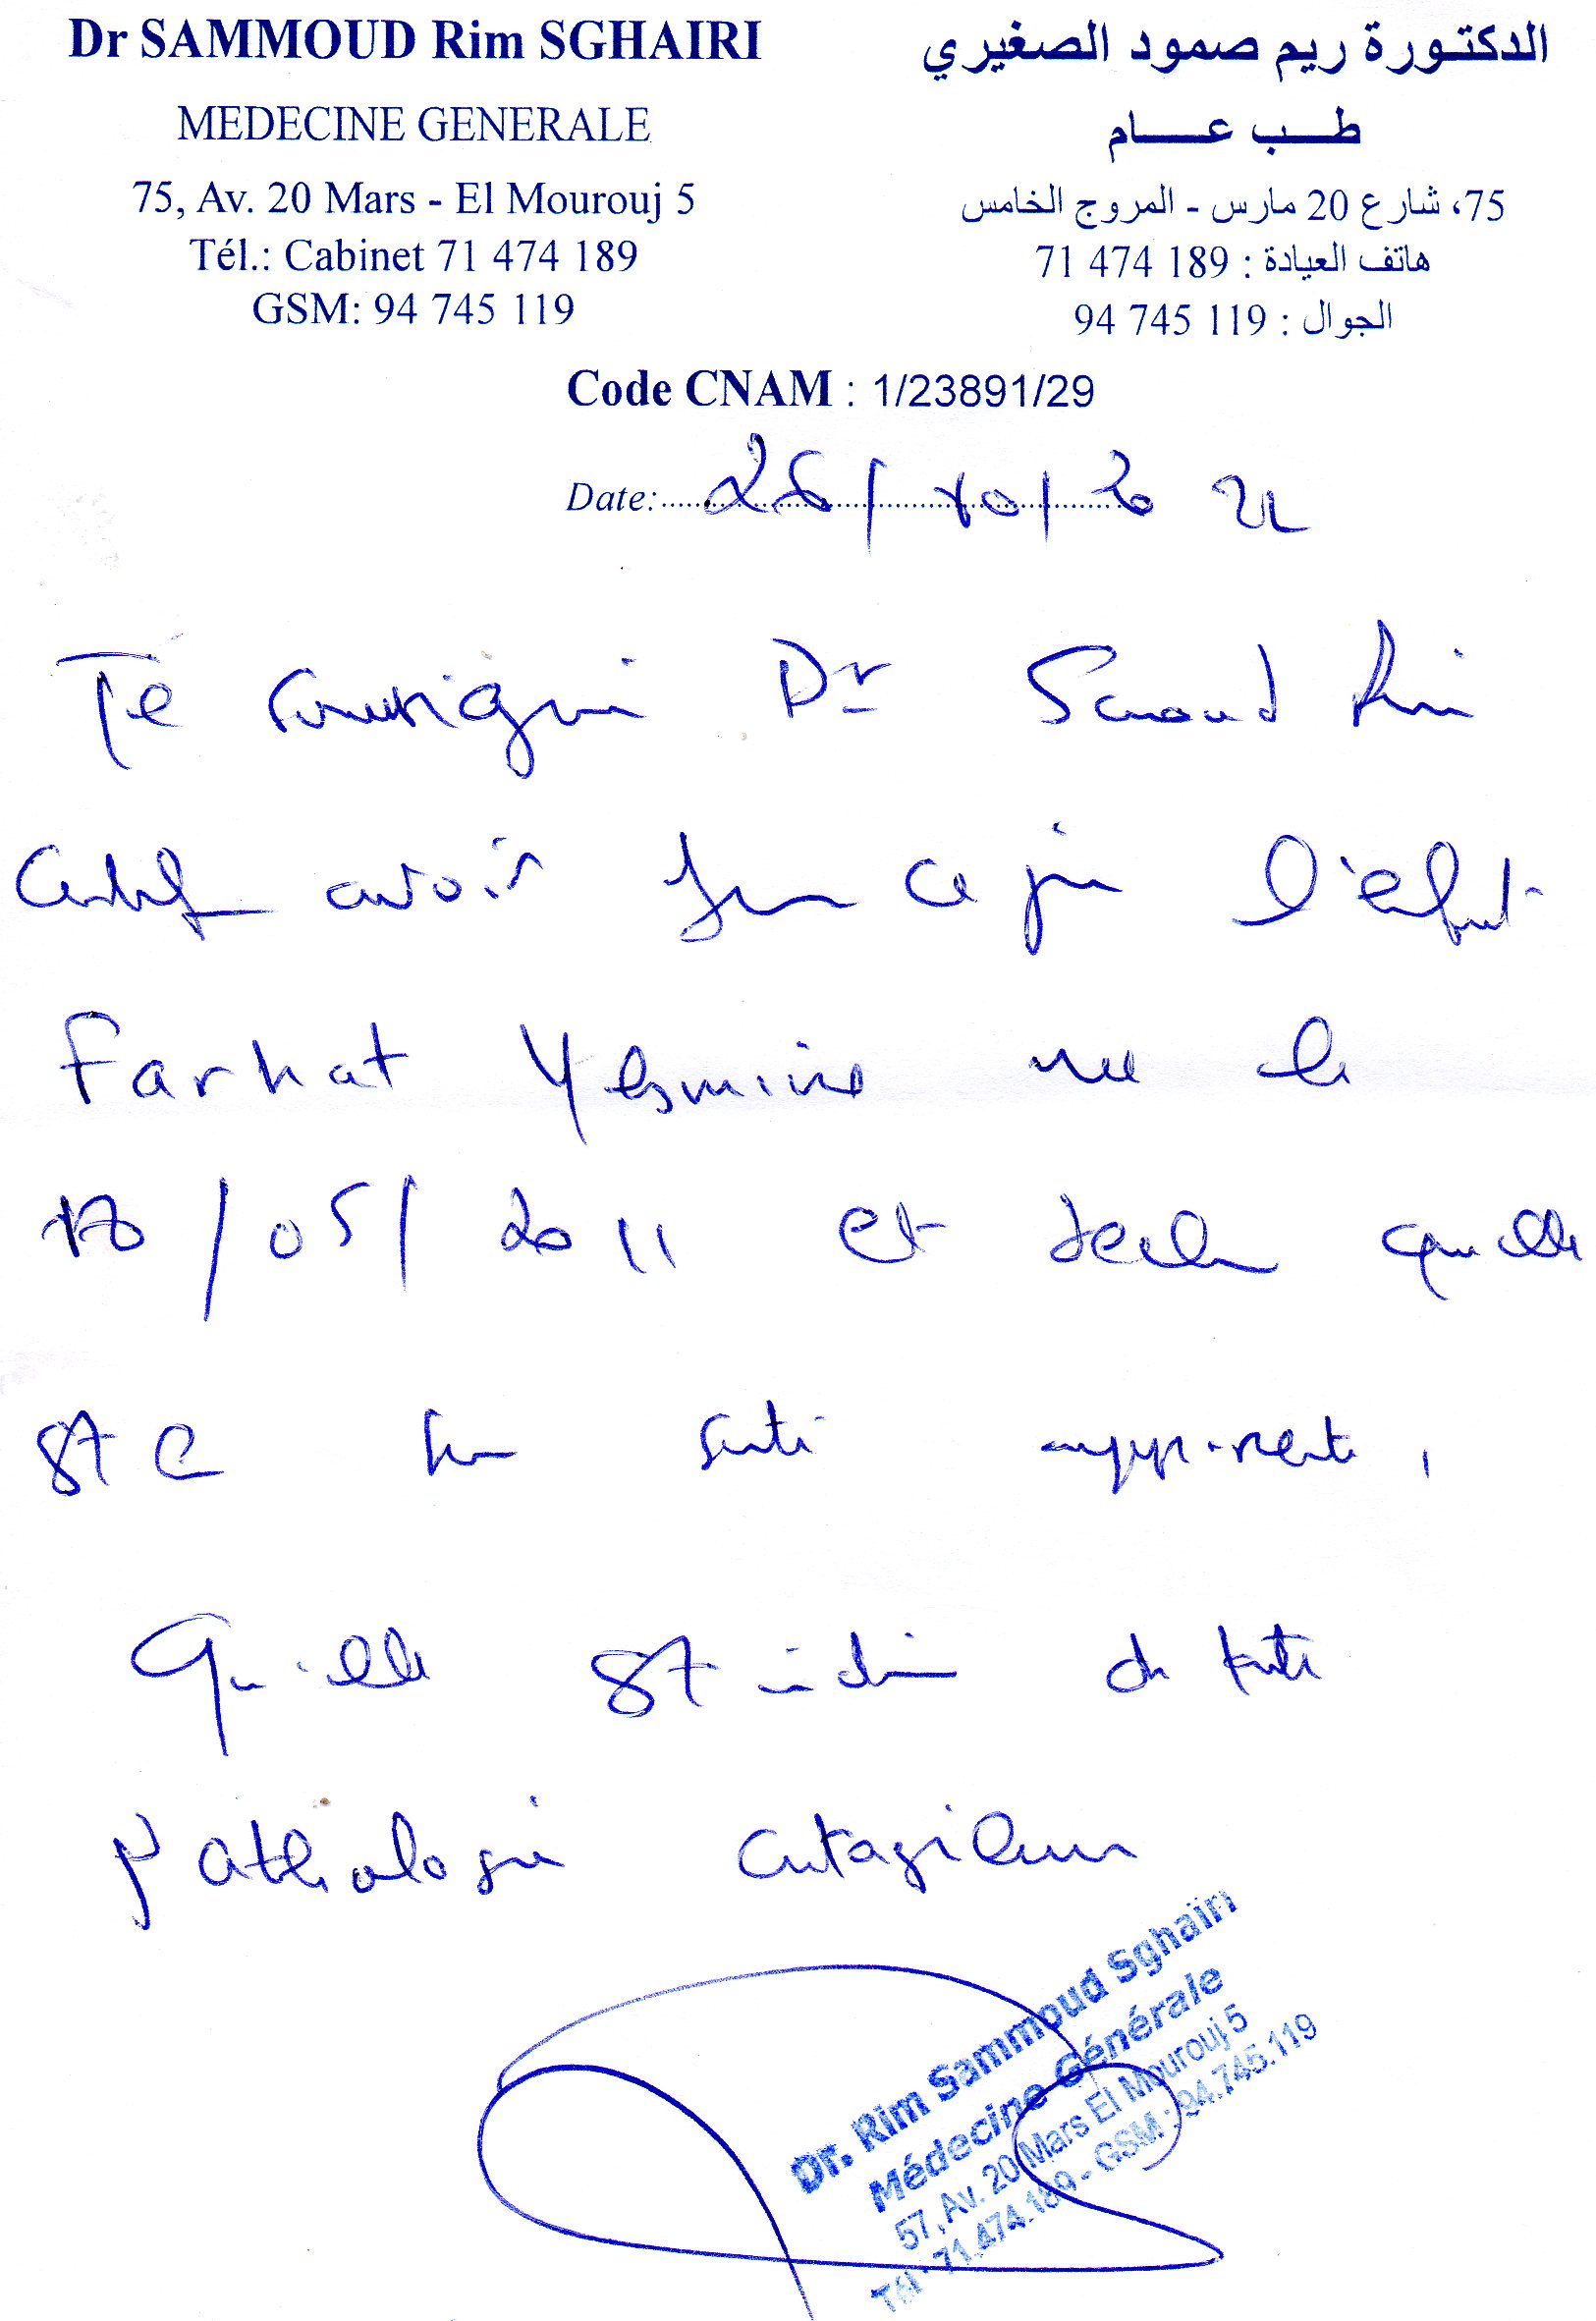 Dr SAMMOUD Rim SGHAIRI
MEDECINE GENERALE
75, Av. 20 Mars - El Mourouj 5
Tél.: Cabinet 71 474 189
GSM: 94 745 119
الدكتورة ريم صمود الصغيري
طب عام
75، شارع 20 مارس - المروج الخامس
هاتف العيادة : 189 474 71
الجوال : 119 745 94
Code CNAM : 1/23891/29
Date: 26/10/20
Je soussigné Dr Samoud Rim
Certifie avoir ce jour l'enfant
Farhat Yesmine née le
/05/2011 et declare qu'elle
est en bon santé apparente,
Qu'elle est indemne de toute
pathologie contagieuse
Dr. Rim Sammoud Sghairi
Médecine Générale
57, Av. 20 Mars El Mourouj 5
Tél : 71.474.189 - GSM : 94.745.119